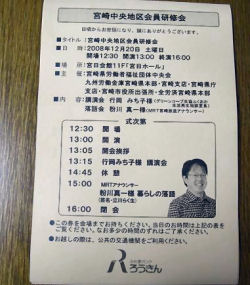 宮崎中央地区会員研修会
日頃からお世話になり、誠にありがとうございます。
■タイトル:宮崎中央地区会員研修会
■日 時:2008年12月20日 土曜日
開場12:30 開演13:00 終演16:00
■場 所:宮日会館11F「宮日ホール」
■主 催:宮崎県労働者福祉団体中央会
九州労働金庫宮崎県本部・宮崎支店・宮崎県庁
支店・宮崎市役所出張所・全労済宮崎県本部
■内 容:講演会 行岡 みち子様
落語会 粉川 真一様
式次第
12:30 開 場
13:00 開 演
13:05 開会挨拶
13:15 行岡みち子様 講演会
14:45 休 憩
15:00 MRTアナウンサー
粉川真一様 暮らしの落語
16:00 閉 会
●この券を会場までお持ちください。当日のお時間は上記の表を
ご覧ください。なお多少の時間のずれはご了承ください。
●お越しの際は、公共の交通機関をご利用ください。
ろうきん